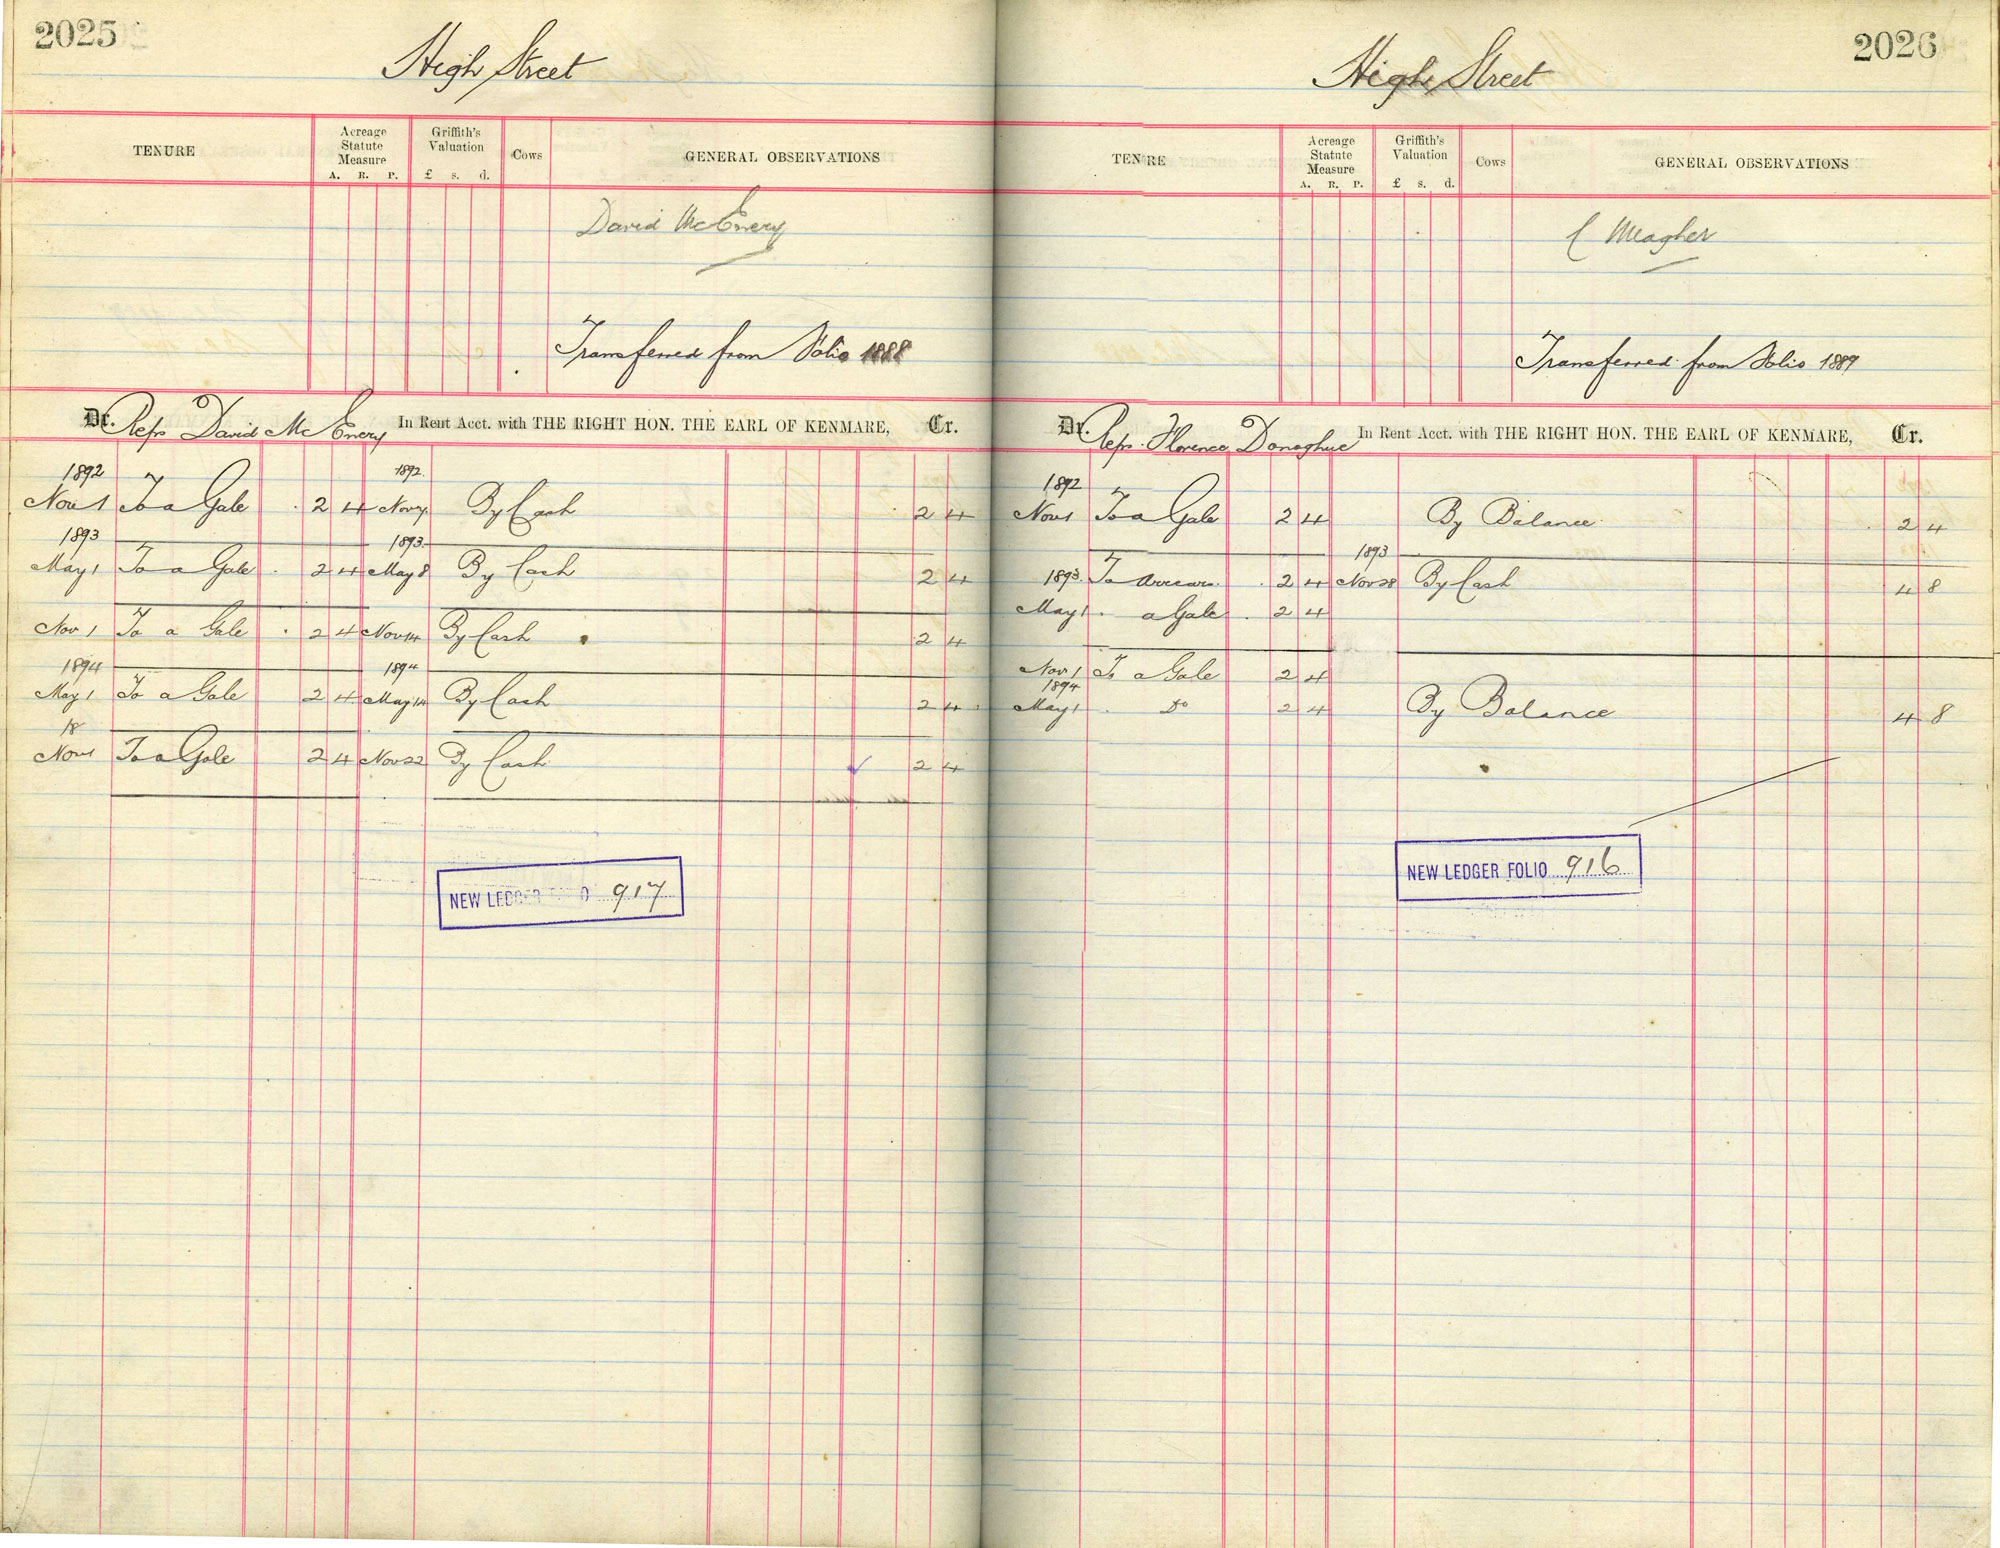 2025
High Street
TENURE
Acreage Statute Measure
A. R. P.
Griffith's Valuation
£ s. d.
Cows
GENERAL OBSERVATIONS
David McEnery
Transferred from Folio 1888
Dr. Reps David McEnery In Rent Acct. with THE RIGHT HON. THE EARL OF KENMARE, Cr.
1892 1892.
Nov 1 To a Gale 2 4 Nov 7 By Cash 2 4
1893 1893
May 1 To a Gale 2 4 May 8 By Cash 2 4
Nov 1 To a Gale 2 4 Nov 14 By Cash 2 4
1894 1894
May 1 To a Gale 2 4 May 14 By Cash 2 4
18
Nov 1 To a Gale 2 4 Nov 22 By Cash 2 4
NEW LEDGER FOLIO 917
2026
High Street
TENRE
Acreage Statute Measure
A. R. P.
Griffith's Valuation
£ s. d.
Cows
GENERAL OBSERVATIONS
Meagher
Transferred from Folio 1889
Dr. Reps. Florence Donoghue In Rent Acct. with THE RIGHT HON. THE EARL OF KENMARE, Cr.
1892
Nov 1 To a Gale 2 4 By Balance 2 4
1893
1893. To Arrears 2 4 Nov 28 By Cash 4 8
May 1 a Gale 2 4
Nov 1 To a Gale 2 4
1894
May 1 Do 2 4 By Balance 4 8
NEW LEDGER FOLIO 916